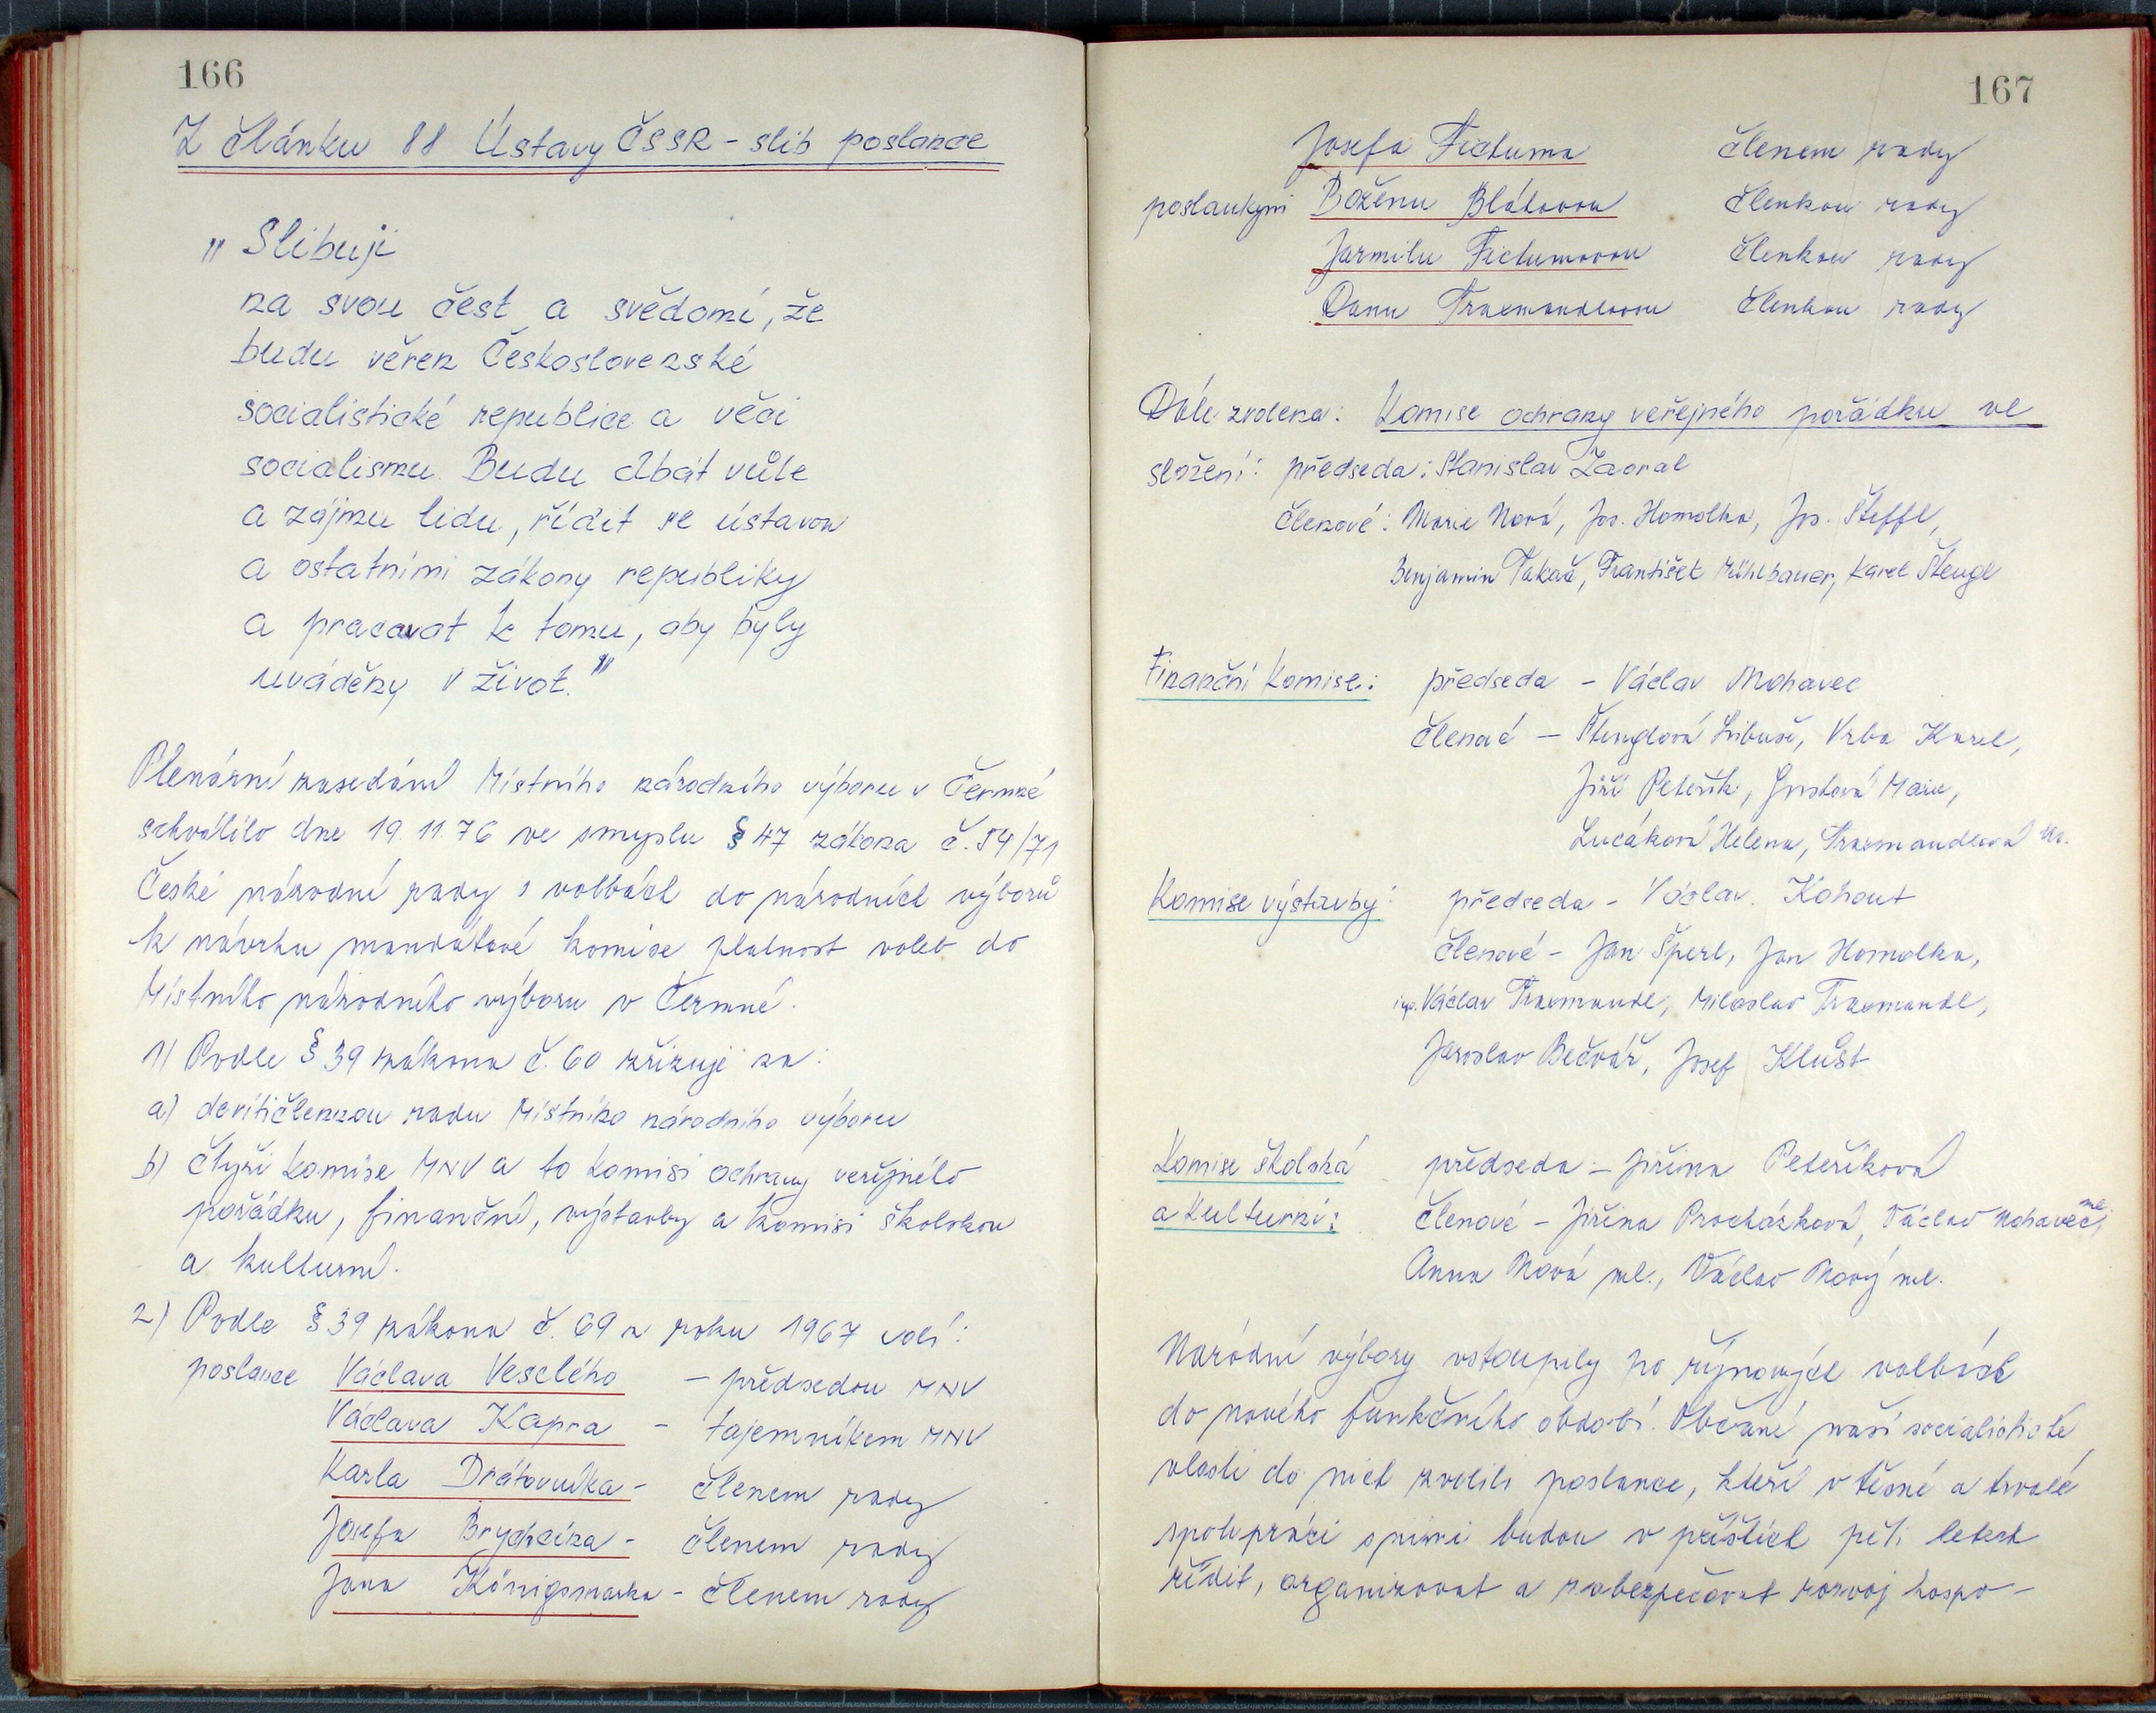 166
Z článku 88 Ústavy ČSSR - slib poslance
"Slibuji
na svou čest a svědomí, že
budu věren Československé
socialistické republice a věci
socialismu. Budu dbát vůle
a zájmu lidu, řídit se ústavou
a ostatními zákony republiky
a pracovat k tomu, aby byly
uváděny v život."
Plenární zasedání Místního národního výboru v Čermné
schválilo dne 19.11.76 ve smyslu § 47 zákona č. 54/71
České národní rady o volbách do národních výborů
k návrhu mandátové komise platnost voleb do
Místního národního výboru v Čermné.
1) Podle § 39 zákona č. 60 zřizuje za:
a) devítičlennou radu Místního národního výboru
b) čtyři komise MNV a to komisi ochrany veřejného
pořádku, finanční, výstavby a komisi školskou
a kulturní.
2) Podle § 39 zákona č. 69 z roku 1967 volí:
poslance Václava Veselého - předsedou MNV
Václava Kapra - tajemníkem MNV
Karla Drátovníka - členem rady
Josefa Brychcína - členem rady
Jana Königsmarka - členem rady
167
Josefa Fictuma členem rady
poslankyni Boženu Bláhovou členkou rady
Jarmilu Fictumovou členkou rady
Danu Traxmandlovou členkou rady
Dále zvolena: Komise ochrany veřejného pořádku ve
složení: předseda: Stanislav Zaoral
členové: Marie Nová, Jos. Homolka, Jos. Šteffl,
Benjamin Takač, František Mühlbauer, Karel Štengl
Finanční komise: předseda - Václav Mohavec
členové - Štenglová Libuše, Vrba Karel,
Jiří Peteřík, Marie,
Lucáková Helena, Traxmandlová
Komise výstavby: předseda - Václav Kohout
členové - Jan Šperl, Jan Homolka,
ing. Václav Traxmandl, Miloslav Traxmandl,
Jaroslav Bečvář, Josef Klůst
Komise školská předseda - Jiřina Peteříková
a kulturní: členové - Jiřina Procházková, Václav Mohavec ml.,
Anna Nová ml., Václav Nový ml.
Národní výbory vstoupily po říjnových volbách
do nového funkčního období. Občané naší socialistické
vlasti do nich zvolili poslance, kteří v těsné a trvalé
spolupráci s nimi budou v příštích pěti letech
řídit, organizovat a zabezpečovat rozvoj hospo-